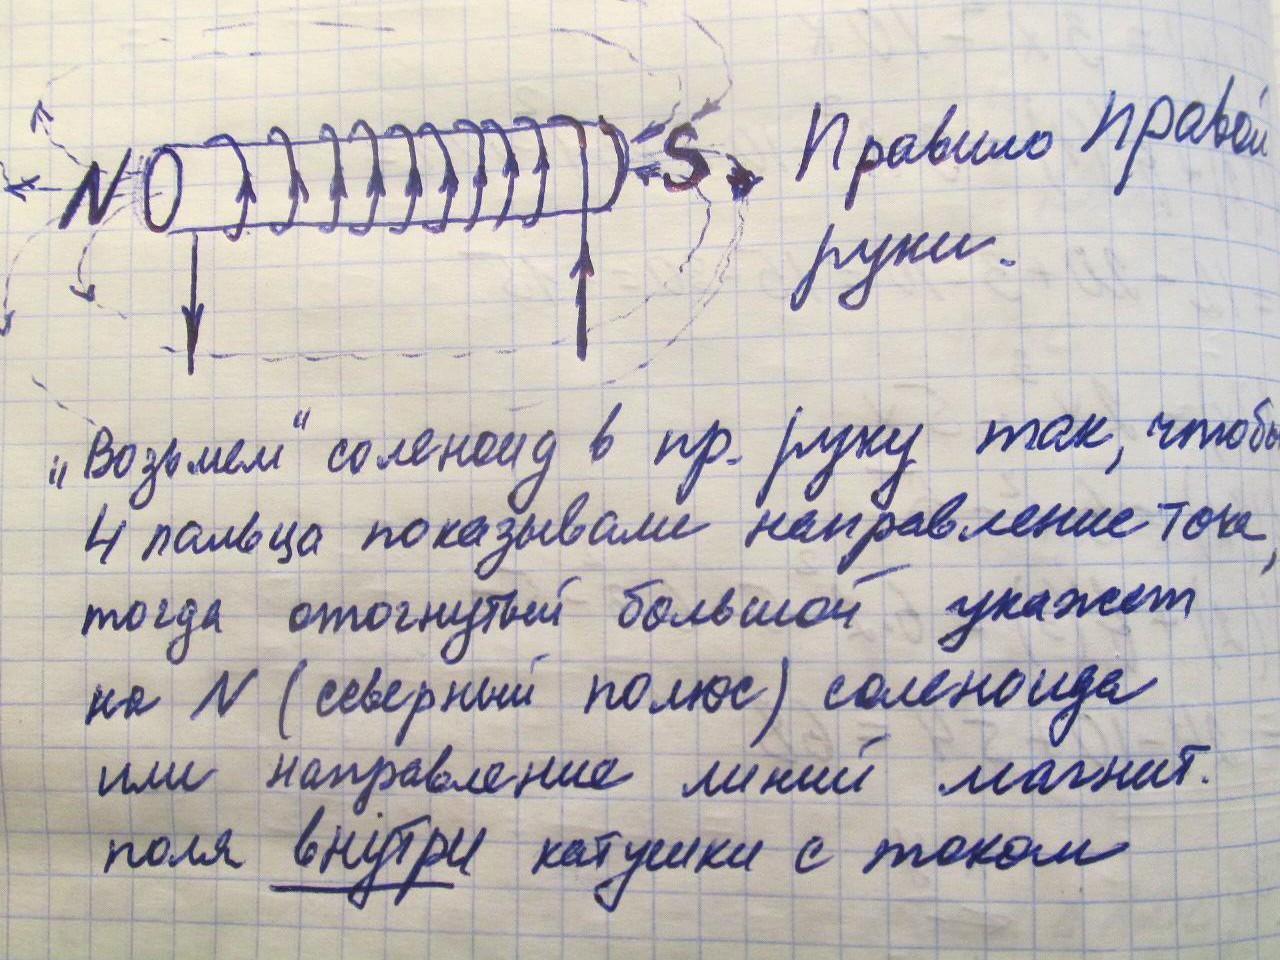 N
S
Правило Правой
руки.
„Возьмем“ соленоид в пр. руку так, чтобы
4 пальца показывали направление тока,
тогда отогнутый большой укажет
на N (северный полюс) соленоида
или направление линий магнит.
поля внутри катушки с током